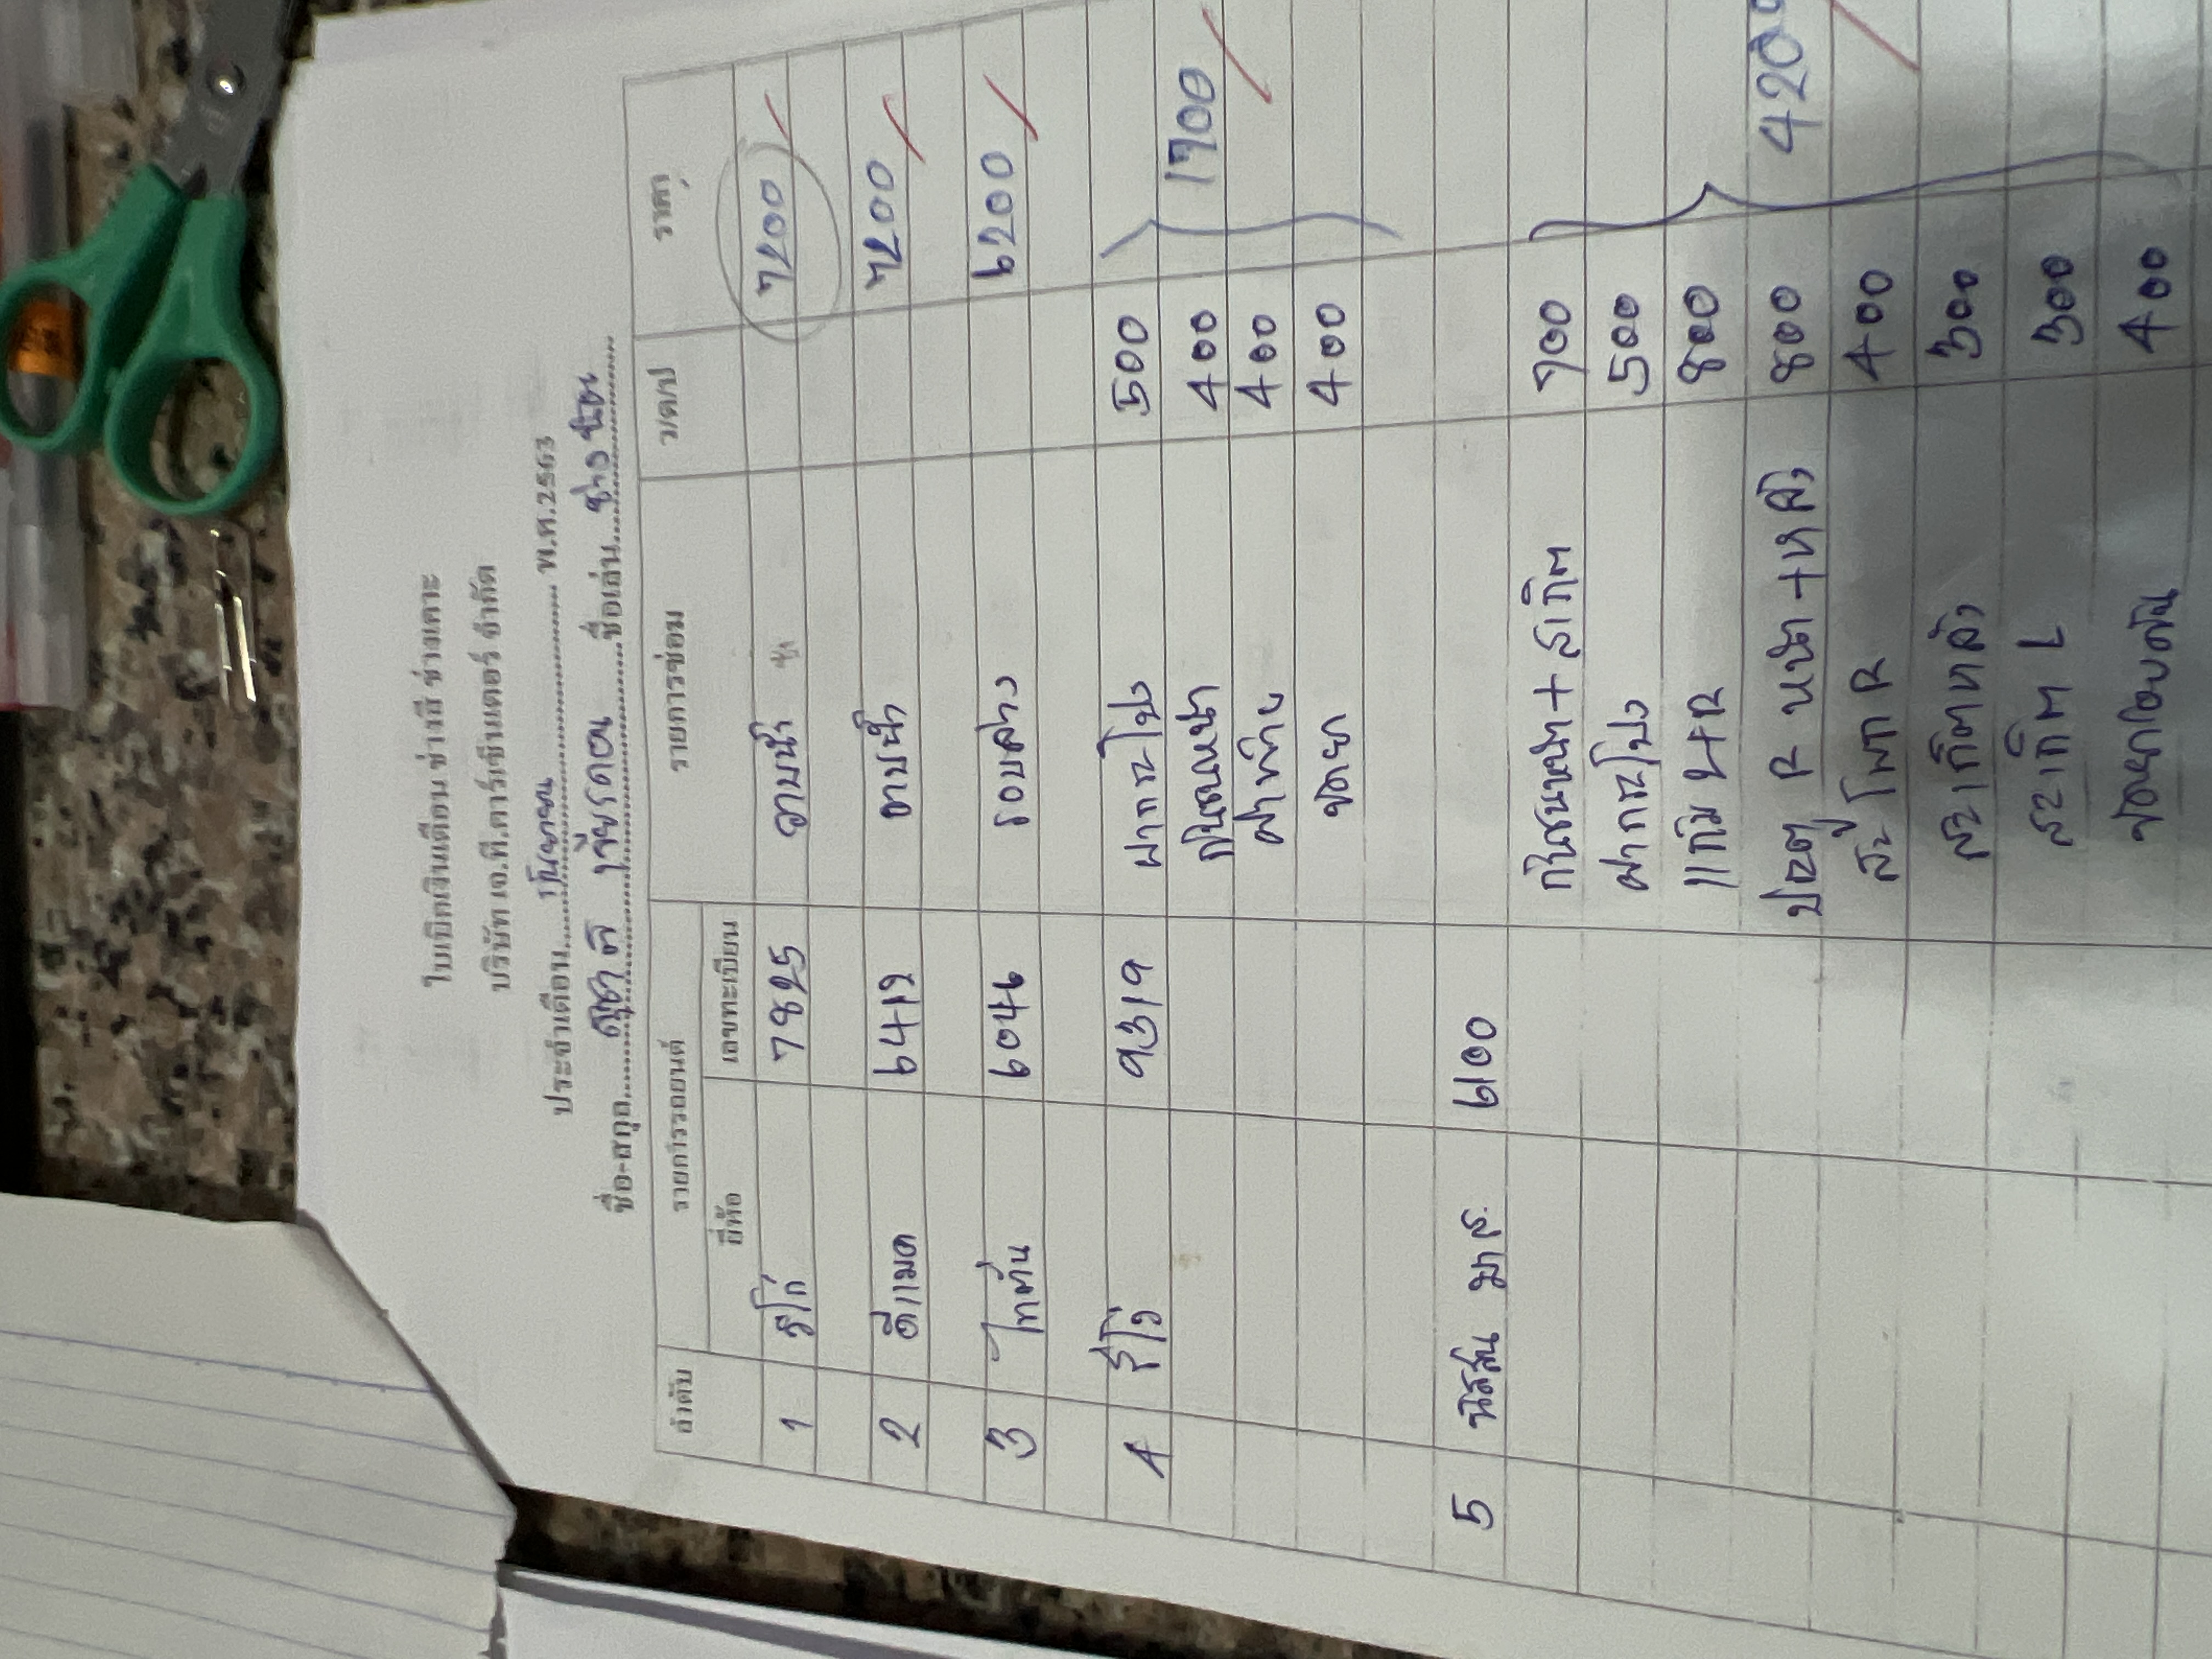 ใบเบิกเงินเดือน ช่างสี ช่างเคาะ
บริษัท เอ.ที.คาร์เซ็นเตอร์ จำกัด
ประจำเดือน กันยายน พ.ศ.2563
ชื่อ-สกุล ชื่อเล่น
ลำดับ รายการรถยนต์ รายการซ่อม ว/ด/ป ราคา
ยี่ห้อ เลขทะเบียน
1 7825 อาบน้ำ 7200
2 ดีแมค 6419 อาบน้ำ 7200
3 ไททัน 6046 รอบสาง 6200
4 9319 ฝากระโปรง 500
กันชนหน้า 400 1700
ฝาท้าย 400
ชดยา 400
5 นิสสัน มาส. 6100
กันชนหน้า + สเกิต 700
ฝากระโปง 500
แก้ม L+R 800
ประตู R หน้า + หลัง 800
สะโพก R 400
สะเกิตหลัง 300
สะเกิต L 300
400